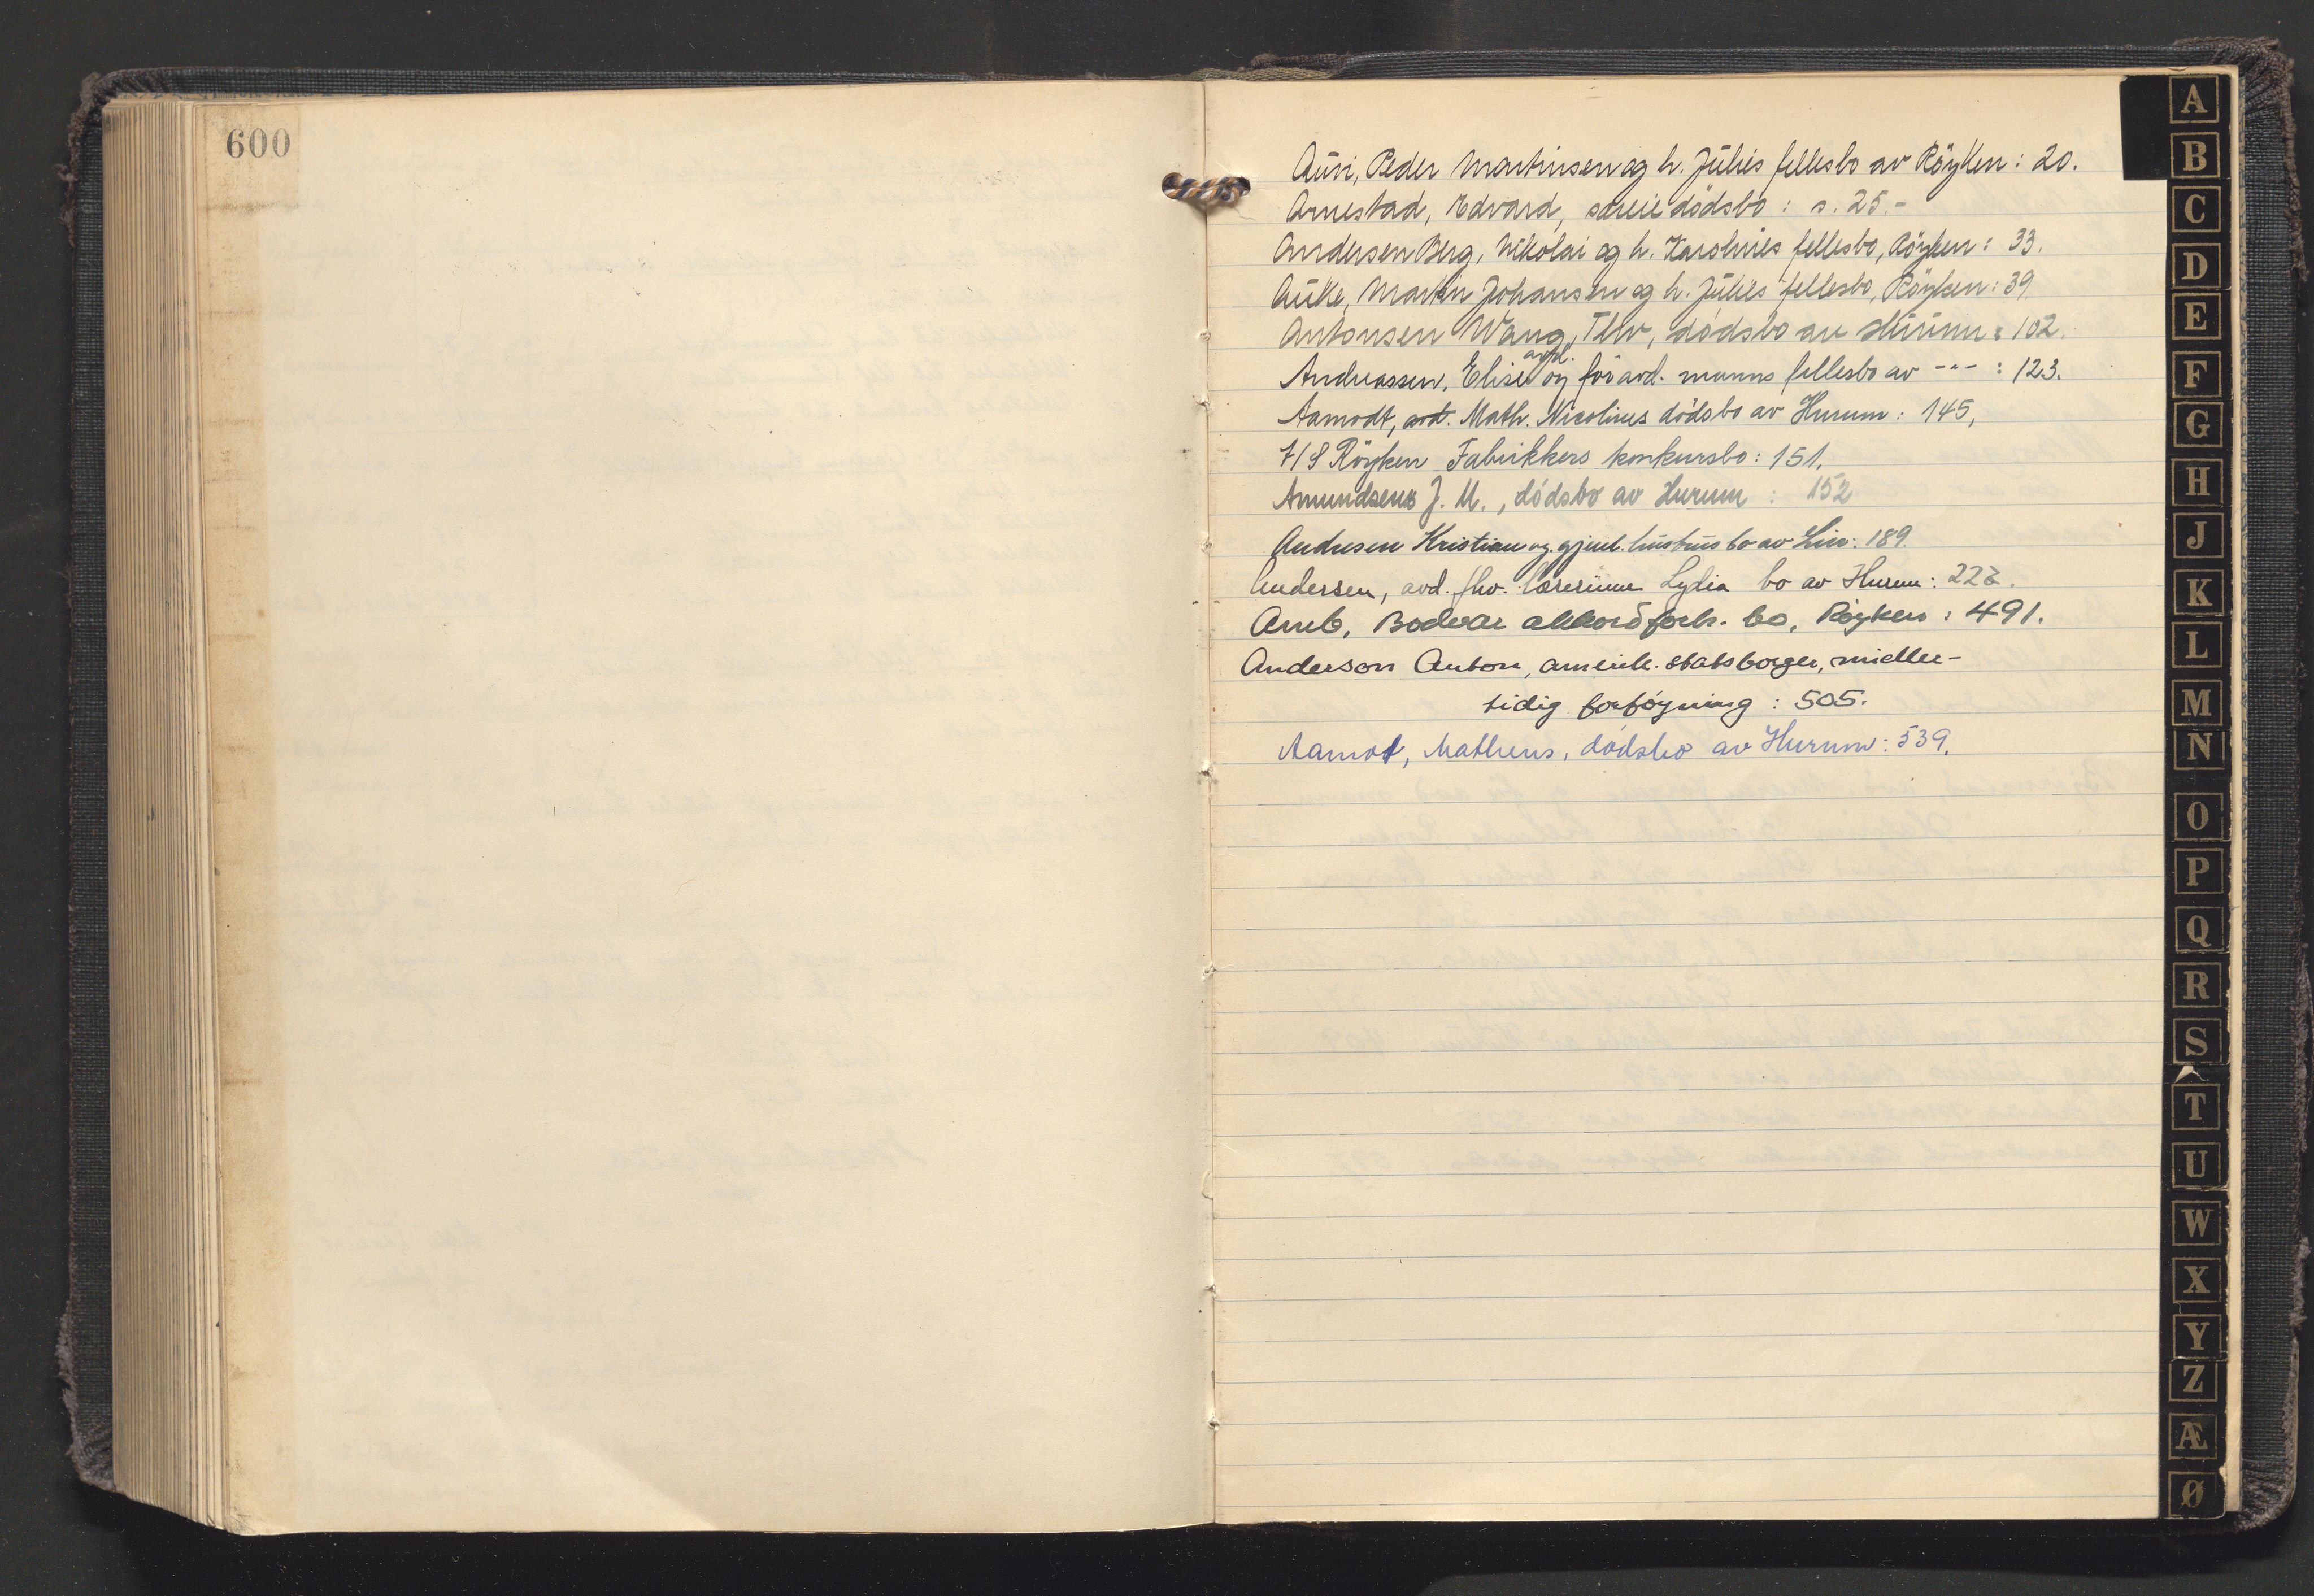 600
Auvi, Peder Martinsen og h. Julies fellesbo av Röyken: 20.
Arnestad, Edvard, særeie dödsbo: s. 25.-
Andersen Berg, Nikolai og h. Karolines fellesbo, Röyken: 33.
Auke, Martin Johansen og h. Julies fellesbo, Röyken: 39.
Antonsen Wang, Thv, dödsbo av Hurum: 102.
avd.
Andreassen, Elise og før avd. manns fellesbo av -"- : 123.
Aamodt, avd. Math. Nicolines dödsbo av Hurum: 145,
A/S Röyken Fabrikkers konkursbo: 151.
Amundsens J. M., dödsbo av Hurum: 152
Andresen Kristian og gjenl. hustrus bo av Lier: 189.
Andersen, avd. fhv. lærerinne Lydia bo av Hurum: 222.
Arneb, Bodvar akkordforh. bo, Röyken: 491.
Anderson Anton, amerik. statsborger, midler-
tidig forföyning: 505.
Aamot, Matheus, dödsbo av Hurum: 539.
A
B
C
D
E
F
G
H
J
K
L
M
N
O
P
Q
R
S
T
U
W
X
Y
Z
Æ
Ø